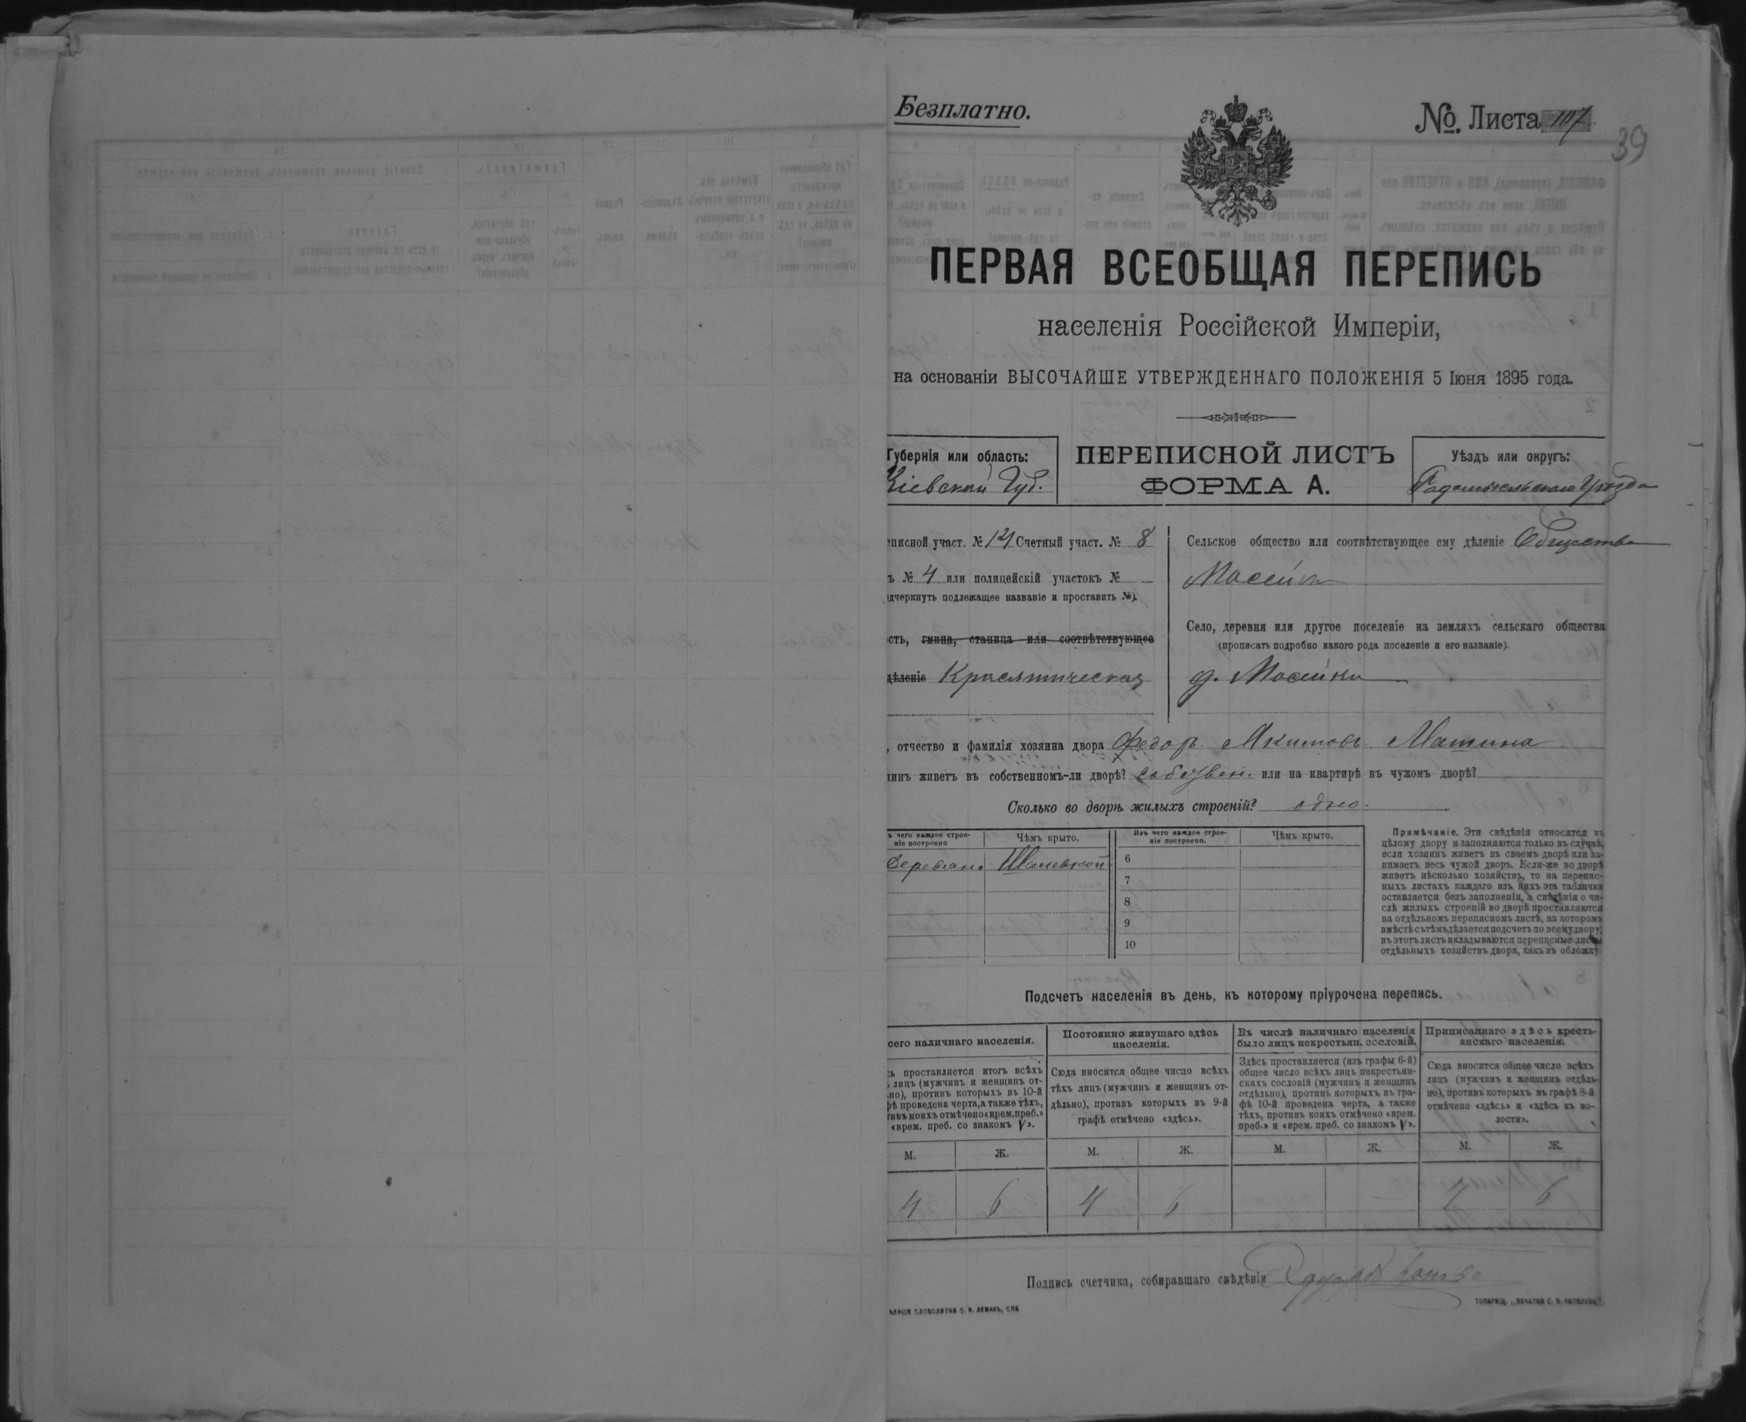 Безплатно.
№. Листа 107
39
ПЕРВАЯ ВСЕОБЩАЯ ПЕРЕПИСЬ
населенія Россійской Имперіи,
на основаніи ВЫСОЧАЙШЕ УТВЕРЖДЕННАГО ПОЛОЖЕНІЯ 5 Іюня 1895 года.
Губернія или область:
Кіевской Губ.
ПЕРЕПИСНОЙ ЛИСТЪ
ФОРМА А.
Уѣздъ или округъ:
Радомысльскаго Уѣзда
еписной участ. № 14 Счетный участ. № 8
ъ № 4 или полицейскій участокъ №
одчеркнуть подлежащее названіе и проставить №).
ость, гмина, станица или соотвѣтствующее
дѣленіе Красятическая
Сельское общество или соотвѣтствующее ему дѣленіе Общество
Мосейки
Село, деревня или другое поселеніе на земляхъ сельскаго общества
(прописать подробно какого рода поселеніе и его названіе).
д. Мосейки
, отчество и фамилія хозяина двора Федор Якимовъ Машина
инъ живетъ въ собственномъ-ли дворѣ? собствен. или на квартирѣ въ чужомъ дворѣ?
Сколько во дворѣ жилыхъ строеній? одно.
ъ чего каждое строе-
ніе построено
Чѣмъ крыто.
Изъ чего каждое строе-
ніе построено.
Чѣмъ крыто.
Деревян. Шалевкой
6
7
8
9
10
Примѣчаніе. Эти свѣдѣнія относятся къ
цѣлому двору и заполняются только въ случаѣ,
если хозяинъ живетъ въ своемъ дворѣ или за-
нимаетъ весь чужой дворъ. Если-же во дворѣ
живетъ нѣсколько хозяйствъ, то на перепис-
ныхъ листахъ каждаго изъ нихъ эта табличка
оставляется безъ заполненія, а свѣдѣнія о чи-
слѣ жилыхъ строеній во дворѣ проставляются
на отдѣльномъ переписномъ листѣ, на которомъ
вмѣстѣ съ тѣмъ дѣлается подсчетъ по всему двору;
въ этотъ листъ вкладываются переписные листы
отдѣльныхъ хозяйствъ двора, какъ въ обложку.
Подсчетъ населенія въ день, къ которому пріурочена перепись.
сего наличнаго населенія.
Постоянно живущаго здѣсь
населенія.
Въ числѣ наличнаго населенія
было лицъ некрестьян. сословій.
Приписаннаго здѣсь кресть-
янскаго населенія.
ь проставляется итогъ всѣхъ
лицъ (мужчинъ и женщинъ от-
но), противъ которыхъ въ 10-й
фѣ проведена черта, а также тѣхъ,
ивъ коихъ отмѣчено «врем. преб.»
«врем. преб. со знакомъ V».
Сюда вносится общее число всѣхъ
тѣхъ лицъ (мужчинъ и женщинъ от-
дѣльно), противъ которыхъ въ 9-й
графѣ отмѣчено «здѣсь».
Здѣсь проставляется (изъ графы 6-й)
общее число всѣхъ лицъ некрестьян-
скихъ сословій (мужчинъ и женщинъ
отдѣльно), противъ которыхъ въ гра-
фѣ 10-й проведена черта, а также
тѣхъ, противъ коихъ отмѣчено «врем.
преб.» и «врем. преб. со знакомъ V».
Сюда вносится общее число всѣхъ
лицъ (мужчинъ и женщинъ отдѣль-
но), противъ которыхъ въ графѣ 8-й
отмѣчено «здѣсь» и «здѣсь въ во-
лости».
М. Ж. М. Ж. М. Ж. М. Ж.
4 6 4 6 4 6
Подпись счетчика, собиравшаго свѣдѣнія